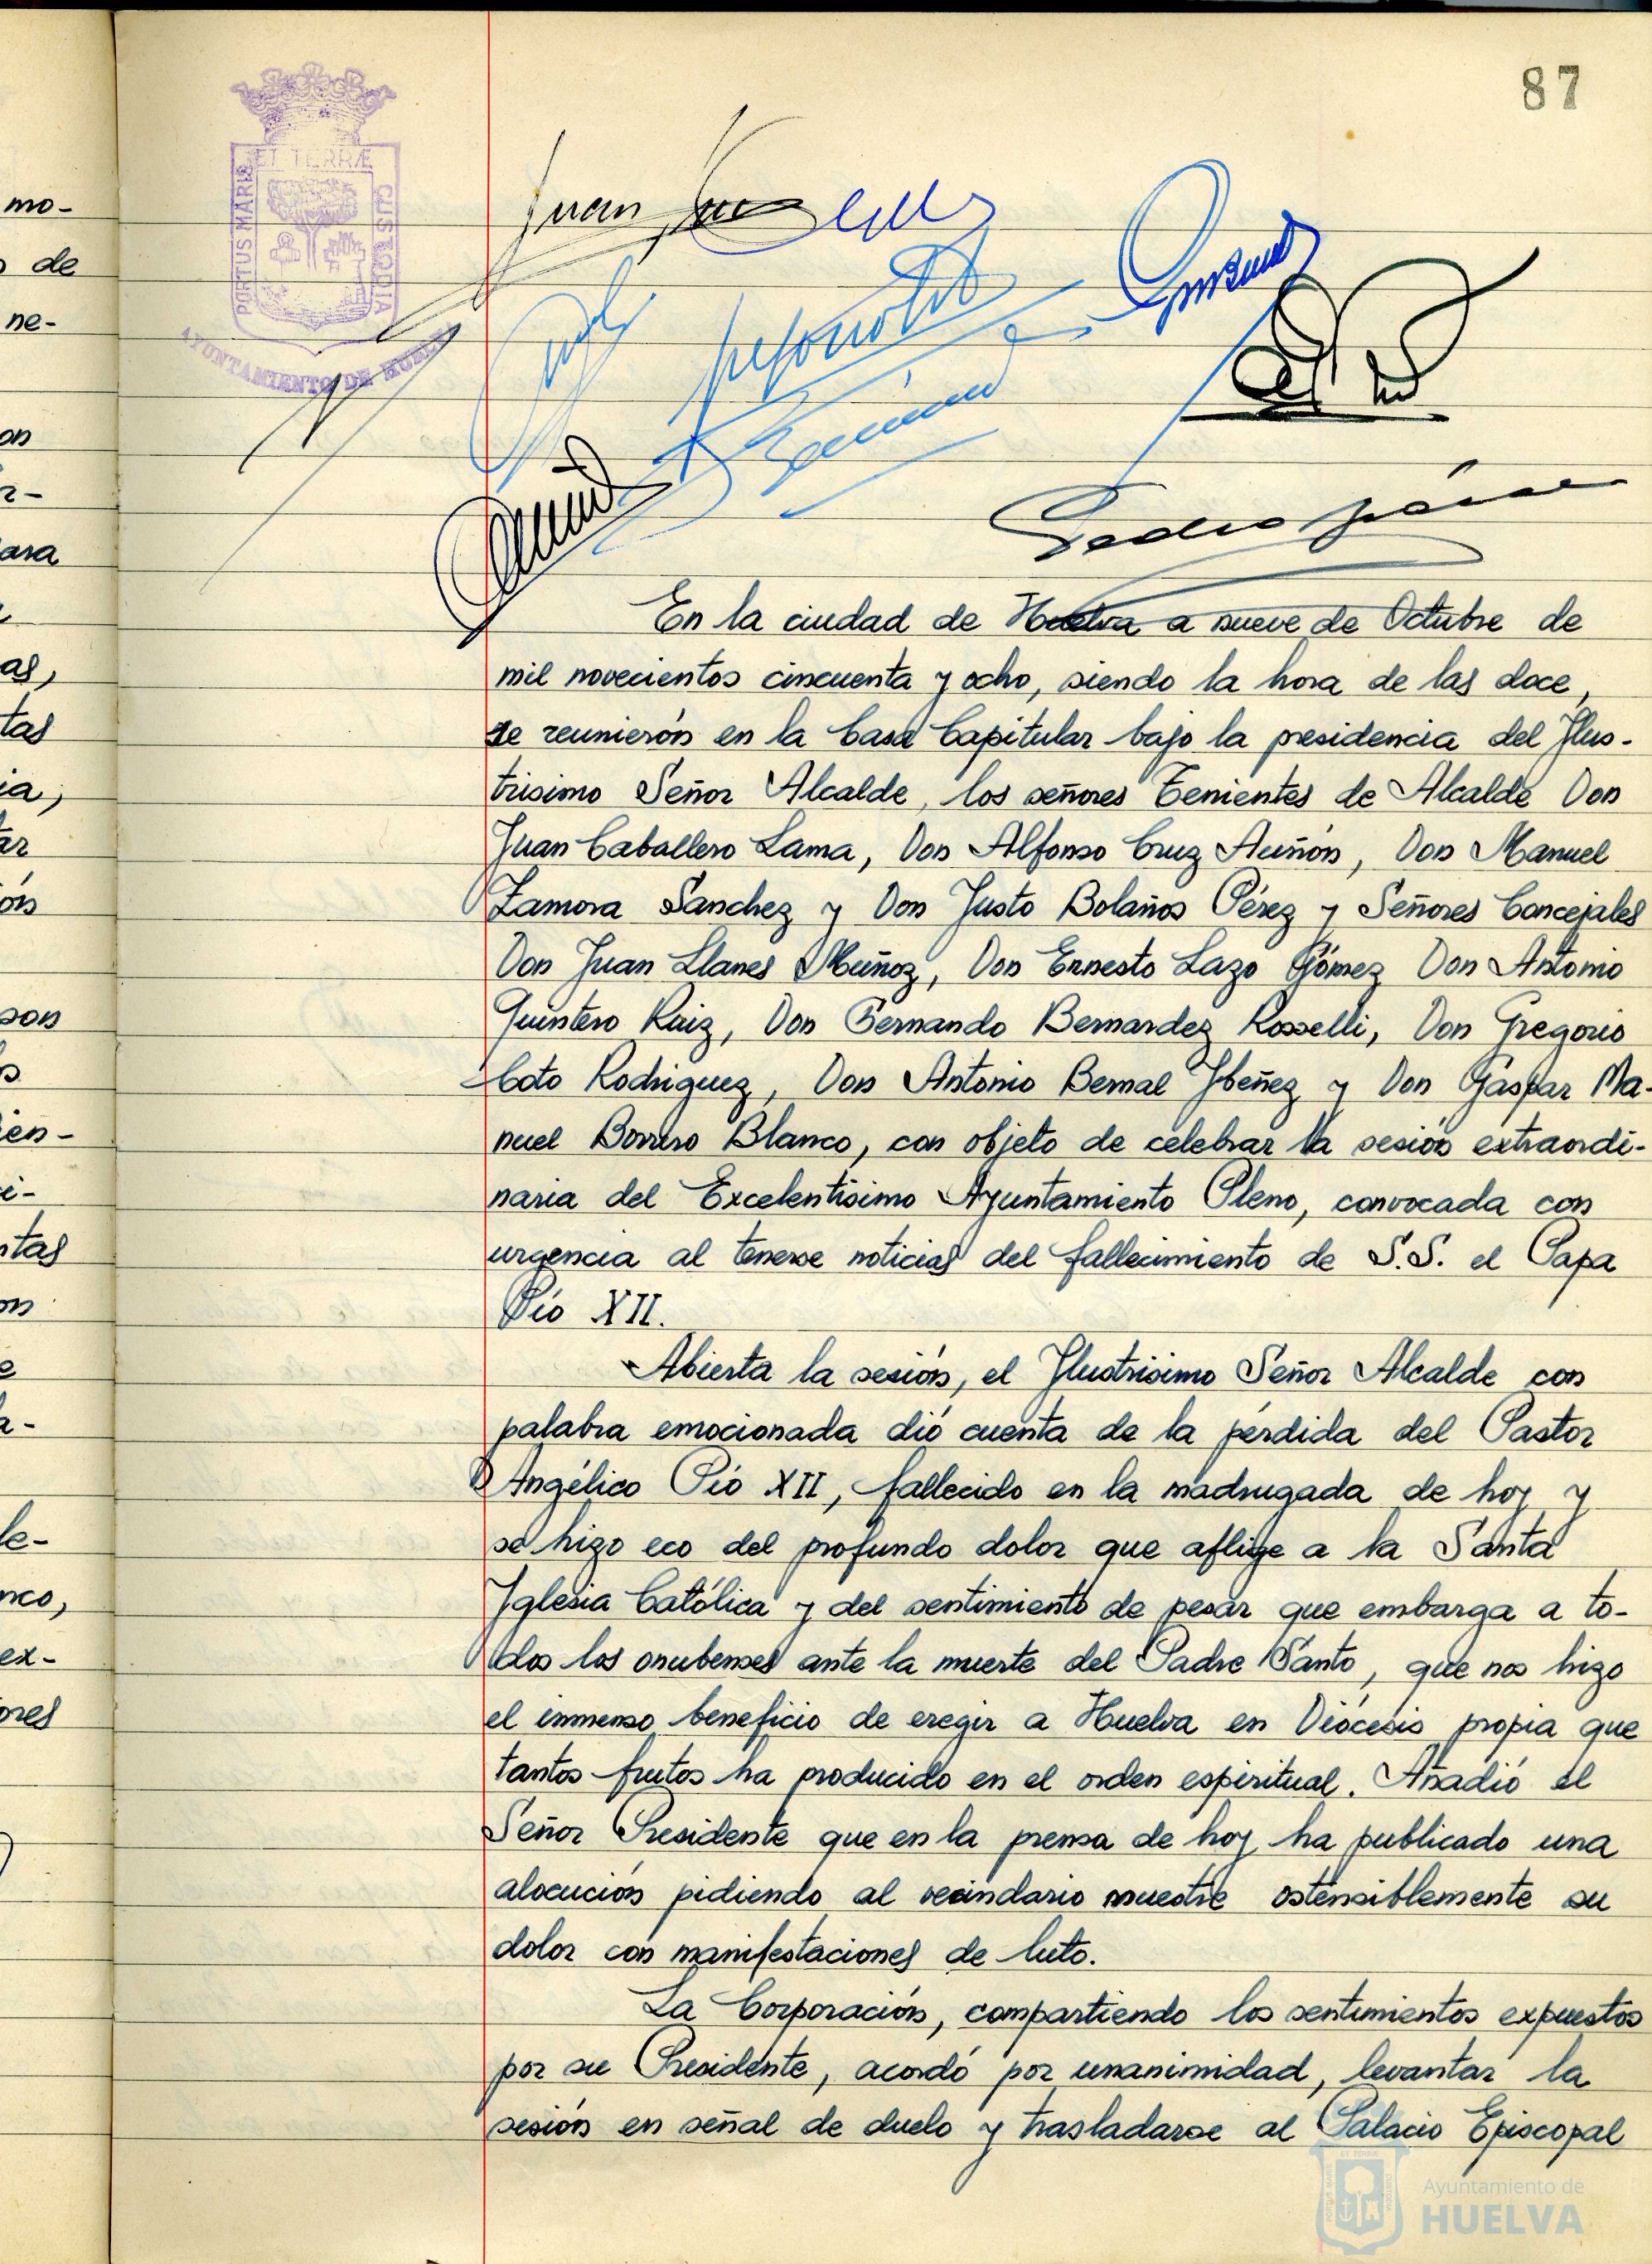 87
PORTUS MARIS
ET TERRÆ
CUSTODIA
AYUNTAMIENTO DE HUELVA
Juan
Pedro
mo-
de
ne-
on
r-
ara
as,
tas
ia,
ar
ón
son
ien-
i-
ntas
on
e
a-
le-
nco,
ex-
ores
En la ciudad de Huelva a nueve de Octubre de
mil novecientos cincuenta y ocho, siendo la hora de las doce,
se reunierón en la Casa Capitular bajo la presidencia del Ilus-
trisimo Señor Alcalde, los señores Tenientes de Alcalde Don
Juan Caballero Lama, Don Alfonso Cruz Auñón, Don Manuel
Zamora Sanchez y Don Justo Bolaños Pérez y Señores Concejales
Don Juan Llanes Muñoz, Don Ernesto Lazo Gómez Don Antonio
Quintero Ruiz, Don Fernando Bernardez Rosselli, Don Gregorio
Coto Rodriguez, Don Antonio Bernal Ybeñez y Don Gaspar Ma-
nuel Borrero Blanco, con objeto de celebrar la sesión extraordi-
naria del Excelentísimo Ayuntamiento Pleno, convocada con
urgencia al tenerse noticias del fallecimiento de S.S. el Papa
Pío XII.
Abierta la sesión, el Ilustrisimo Señor Alcalde con
palabra emocionada dió cuenta de la pérdida del Pastor
Angélico Pío XII, fallecido en la madrugada de hoy y
se hizo eco del profundo dolor que aflige a la Santa
Iglesia Católica y del sentimiento de pesar que embarga a to-
dos los onubenses ante la muerte del Padre Santo, que nos hizo
el inmenso beneficio de eregir a Huelva en Diócesis propia que
tantos frutos ha producido en el orden espiritual. Añadió el
Señor Presidente que en la prensa de hoy ha publicado una
alocución pidiendo al vecindario muestre ostensiblemente su
dolor con manifestaciones de luto.
La Corporación, compartiendo los sentimientos expuestos
por su Presidente, acordó por unanimidad, levantar la
sesión en señal de duelo y trasladarse al Palacio Episcopal
Ayuntamiento de
HUELVA